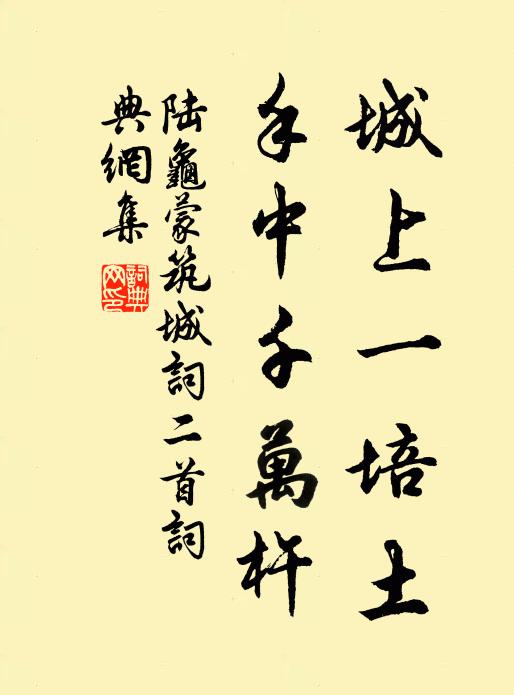 城上一培土
手中千萬杵
陸龜蒙筑城詞二首詞
典網集
詞典網印